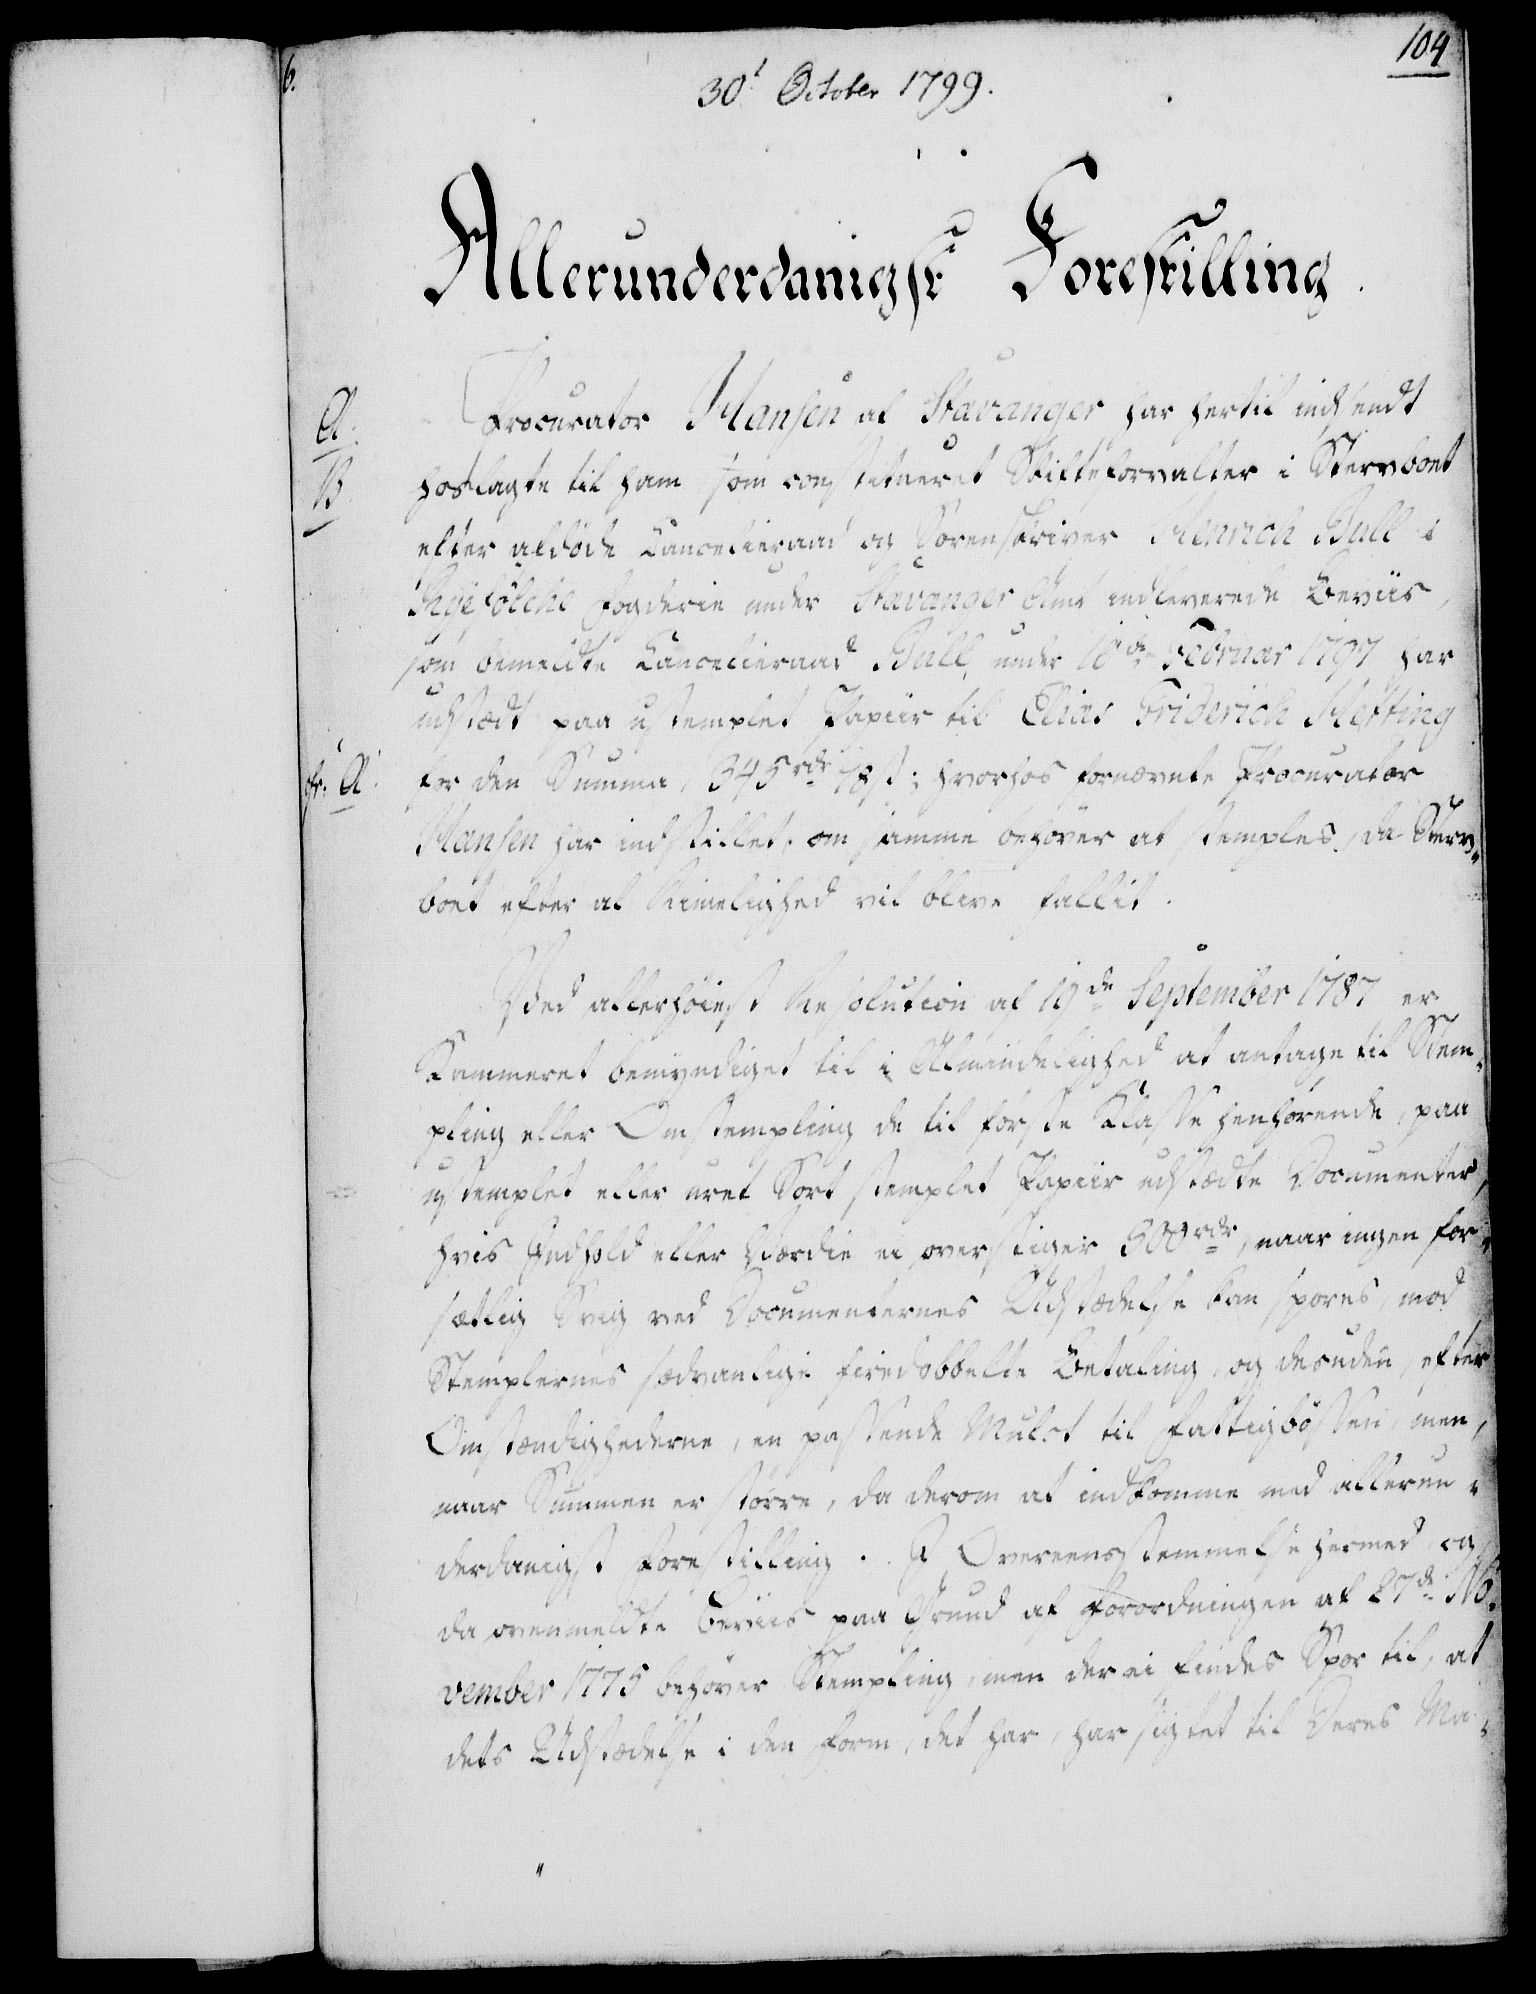 104
6.
30t October 1799.
Allerunderdanigst Forestilling.
A.
B.
Procurator Hansen af Stavanger har hertil indsendt
hoslagte til ham som constitueret Skifteforvalter i Stervboet
efter afdöde Cancelieraad og Sorenskriver Henrich Bull i
Ryefölche Fogderie under Stavanger Amt indleverede Beviis,
som bemeldte Cancelieraad Bull, under 18de Februar 1797 har
udstædt paa ustemplet Papiir til Elias Friderich Hetting
cfr. A.
for den Summa, 345 rdr 78 s; hvorhos fornævnte Procurator
Hansen har indstillet, om samme behöver at stemples, da Sterv-
boet efter al Rimelighed vil blive fallit.
Ved allerhöiest Resolution af 19de September 1787 er
Kammeret bemyndiget til i Almindelighed at antage til Stem-
pling eller Omstempling de til förste Klasse henhörende, paa
ustemplet eller uret Sort stemplet Papiir udstædte Documenter,
hvis Indhold eller Værdie ei overstiger 300 rdr, naar ingen for-
sætlig Svig ved Documenternes Udstædelse kan spores, mod
Stemplernes sædvanlige firedobbelte Betaling, og desuden, efter
Omstændighederne, en passende Mulct til Fattigbössen, men,
naar Summen er större, da derom at indkomme med allerun-
derdanigst Forestilling. I Overeensstemmelse hermed og
da ovenmeldte Beviis paa Grund af Forordningen af 27de No-
vember 1775 behöver Stempling, men der ei findes Spor til, at
dets Udstædelse i den Form, det har, har sigtet til Deres Ma-